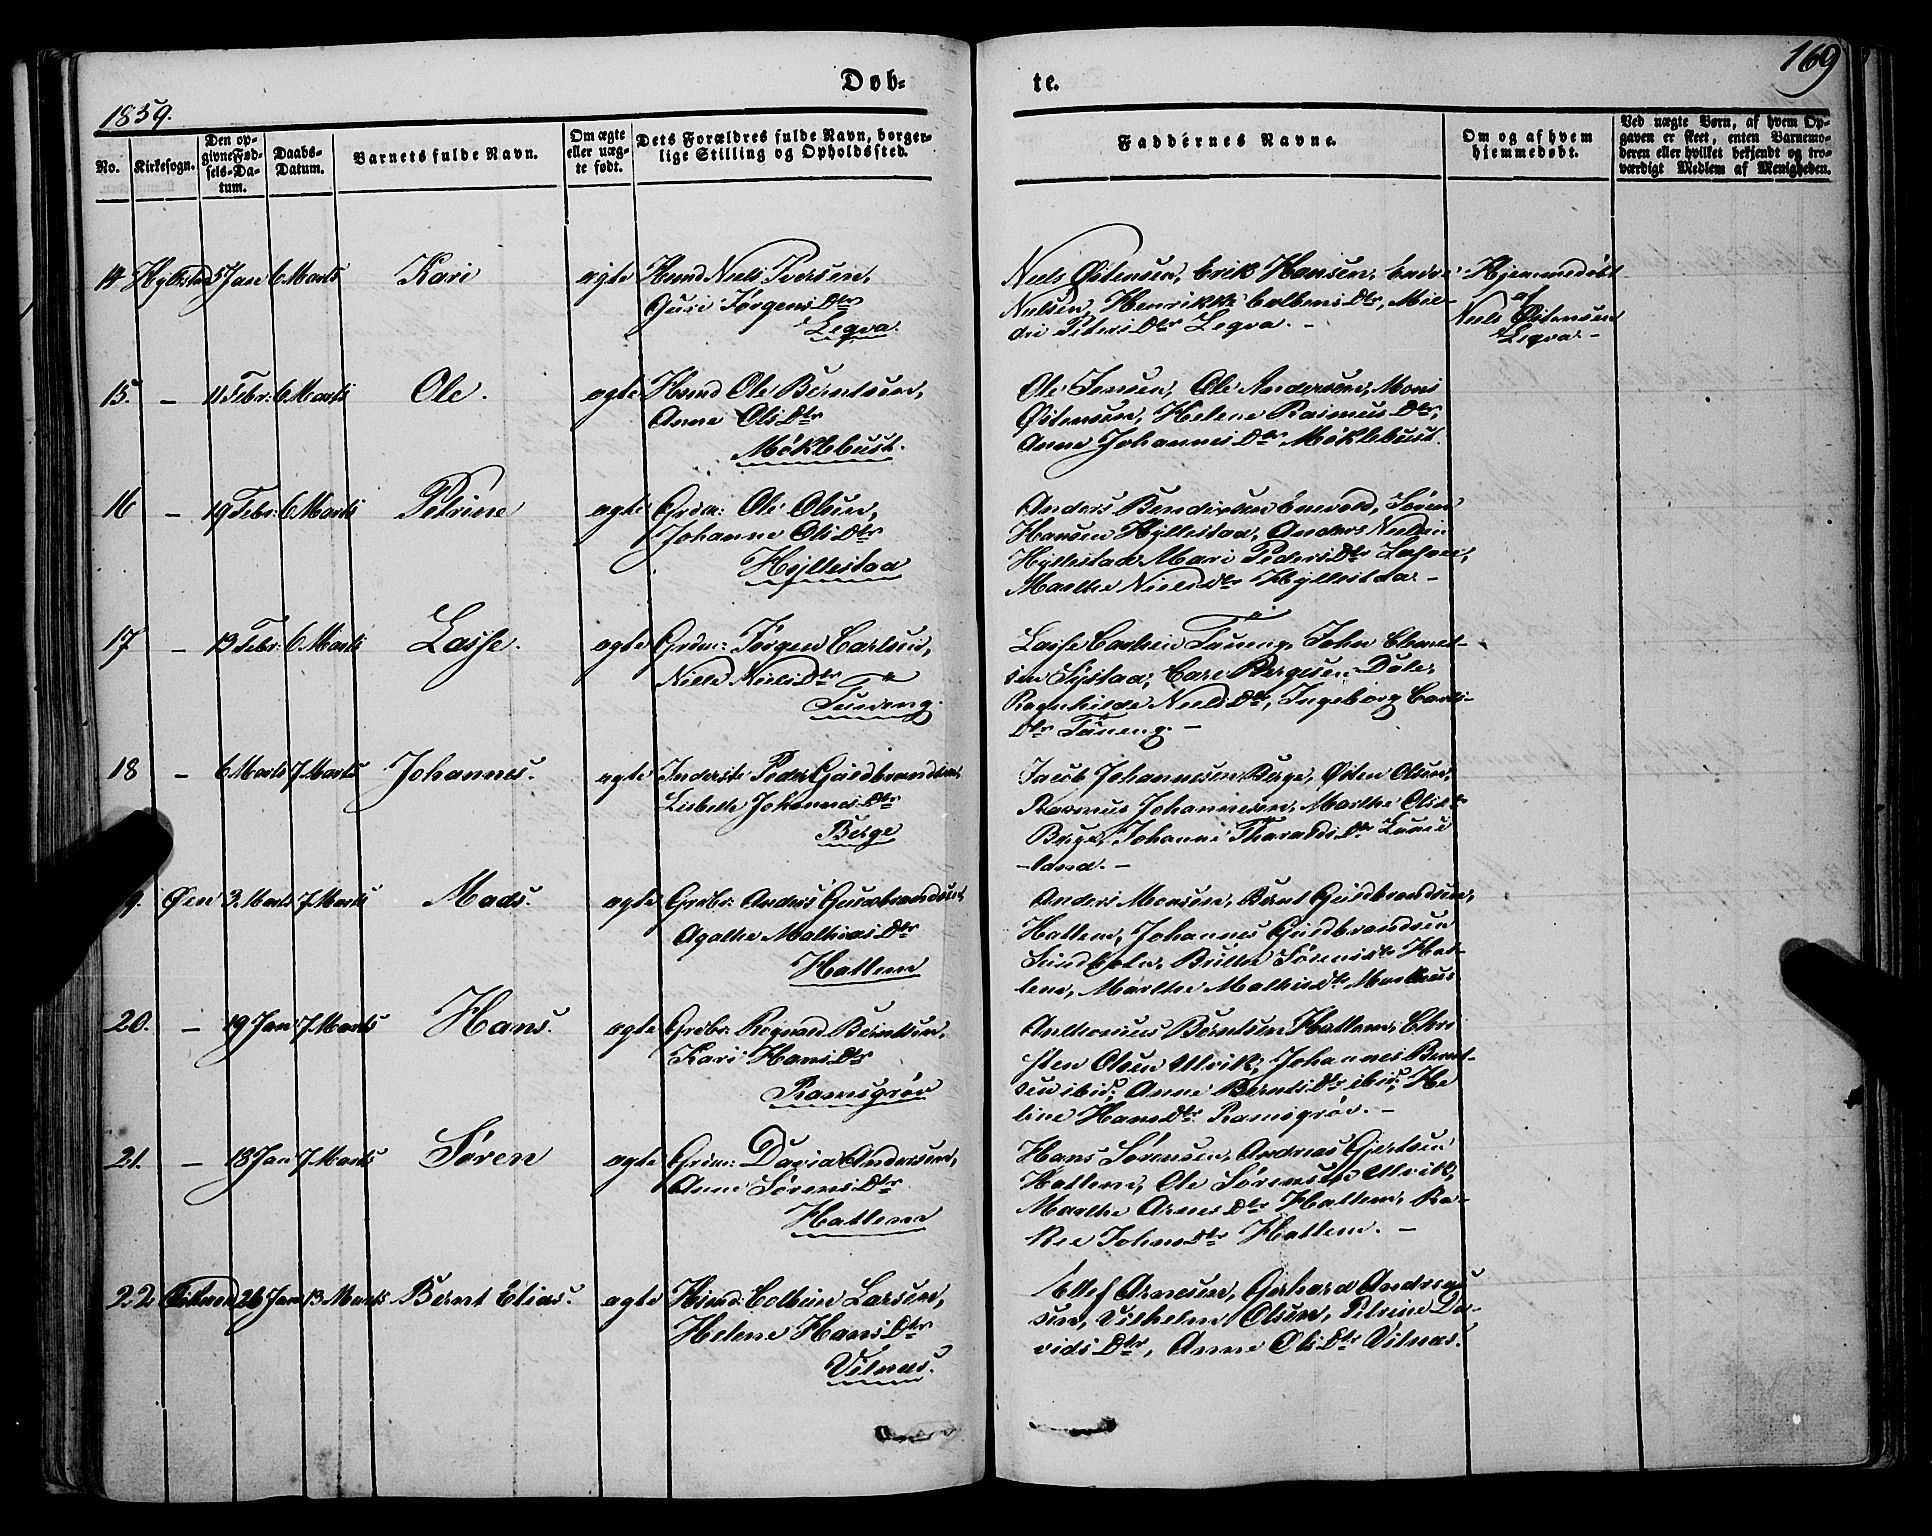 169
Døb-
te.
1859.
No.
Kirkesogn.
Den op-
givne Fød-
sels-Da-
tum.
Daabs-
Datum.
Barnets fulde Navn.
Om ægte
eller uæg-
te født.
Dets Forældres fulde Navn, borger-
lige Stilling og Opholdssted.
Faddernes Navne.
Om og af hvem
hjemmedøbt.
Ved uægte Børn, af hvem Op-
gaven er skeet, enten Barnemo-
deren eller hvilket bekjendt og tro-
værdigt Medlem af Menigheden.
14 Hyllestad 5 Jan 6 Marts Kari ægte Hsmd Niels Iversen,
Guri Jørgens Dtr
Leqva.
Niels Østensen, Erik Hansen,
Nielsen, Henrikke Colbens Dtr, Mil-
dri Peters Dtr Leqva. –
Hjemmedøbt
af
Niels Østensen
Leqva –
15. – 11 Febr: 6 Marts Ole. ægte Hsmd Ole Berntsen,
Anne Ols Dtr
Møklebust.
Ole Jensen, Ole Andersen, Mons
Østensen, Helene Rasmus Dtr,
Anne Johannes Dtr Møklebust.
16 – 19 Febr: 6 Marts Petrine ægte Grdm: Ole Olsen,
Johanne Ols Dtr
Hyllestad
Anders Bendixsen Søren
Hansen Hyllestad, Anders Nielsen
Hyllestad Mari Peders Dtr
Marthe Niels Dtr Hyllestad –
17 – 13 Febr: 6 Marts Lasse. ægte Grdm: Jørgen Carlsen,
Nille Niels Dtr
Tuneng.
Lasse Carlsen Tuneng, John Clemet-
sen Systad, Carl Børgesen Dale,
Ragnhilde Niels Dtr, Ingeborg Carls-
Dtr Tuneng. –
18 – 6 Marts 7 Marts Johannes. ægte Inderste Peder Guldbrandsen,
Lisbethe Johannes Dtr
Berge
Jacob Johannesen Berge, Østen Olsen,
Rasmus Johannesen, Marthe Ols Dtr
Berge, Johanne Tharalds Dtr
–land. –
19. Øen 3 Marts 7 Marts Mads. ægte Grdbr: Anders Guldbrandsen,
Agathe Mathias Dtr
Hatlem
Anders Monsen, Bernt Guldbrandsen,
Hatlem, Johannes Guldbrandsen
Brithe Sørens Dtr Hat-
lem, Marthe Mathias Dtr
20. – 19 Jan 7 Marts Hans. ægte Grdbr: Rognald Berntsen,
Kari Hans Dtr
Ramsgrøv
Anthonius Berntsen Hatlem, Chri
sten Olsen Ulvik, Johannes Bernt-
sen ibid; Anne Bernts Dtr ibid; He
line Hans Dtr Ramsgrøv. –
21. – 18 Jan 7 Marts Søren ægte Grdm: David Andersen,
Anne Sørens Dtr
Hatlem
Hans Sørensen, Andreas Gjertsen
Hatlem, Ole Sørensen Ulvik,
Marthe Arnes Dtr Hatlem, Ra-
kee Johns Dtr Hatlem. –
22 26 Jan 13 Marts Bernt Elias. ægte Hsmd: Colbein Larsen,
Helene Hans Dtr
Vilnæs.
Ellef Arnesen, Gerhard Andreas-
sen, Vilhelm Olsen, Petrine Da-
vids Dtr, Anne Ols Dtr Vilnæs.